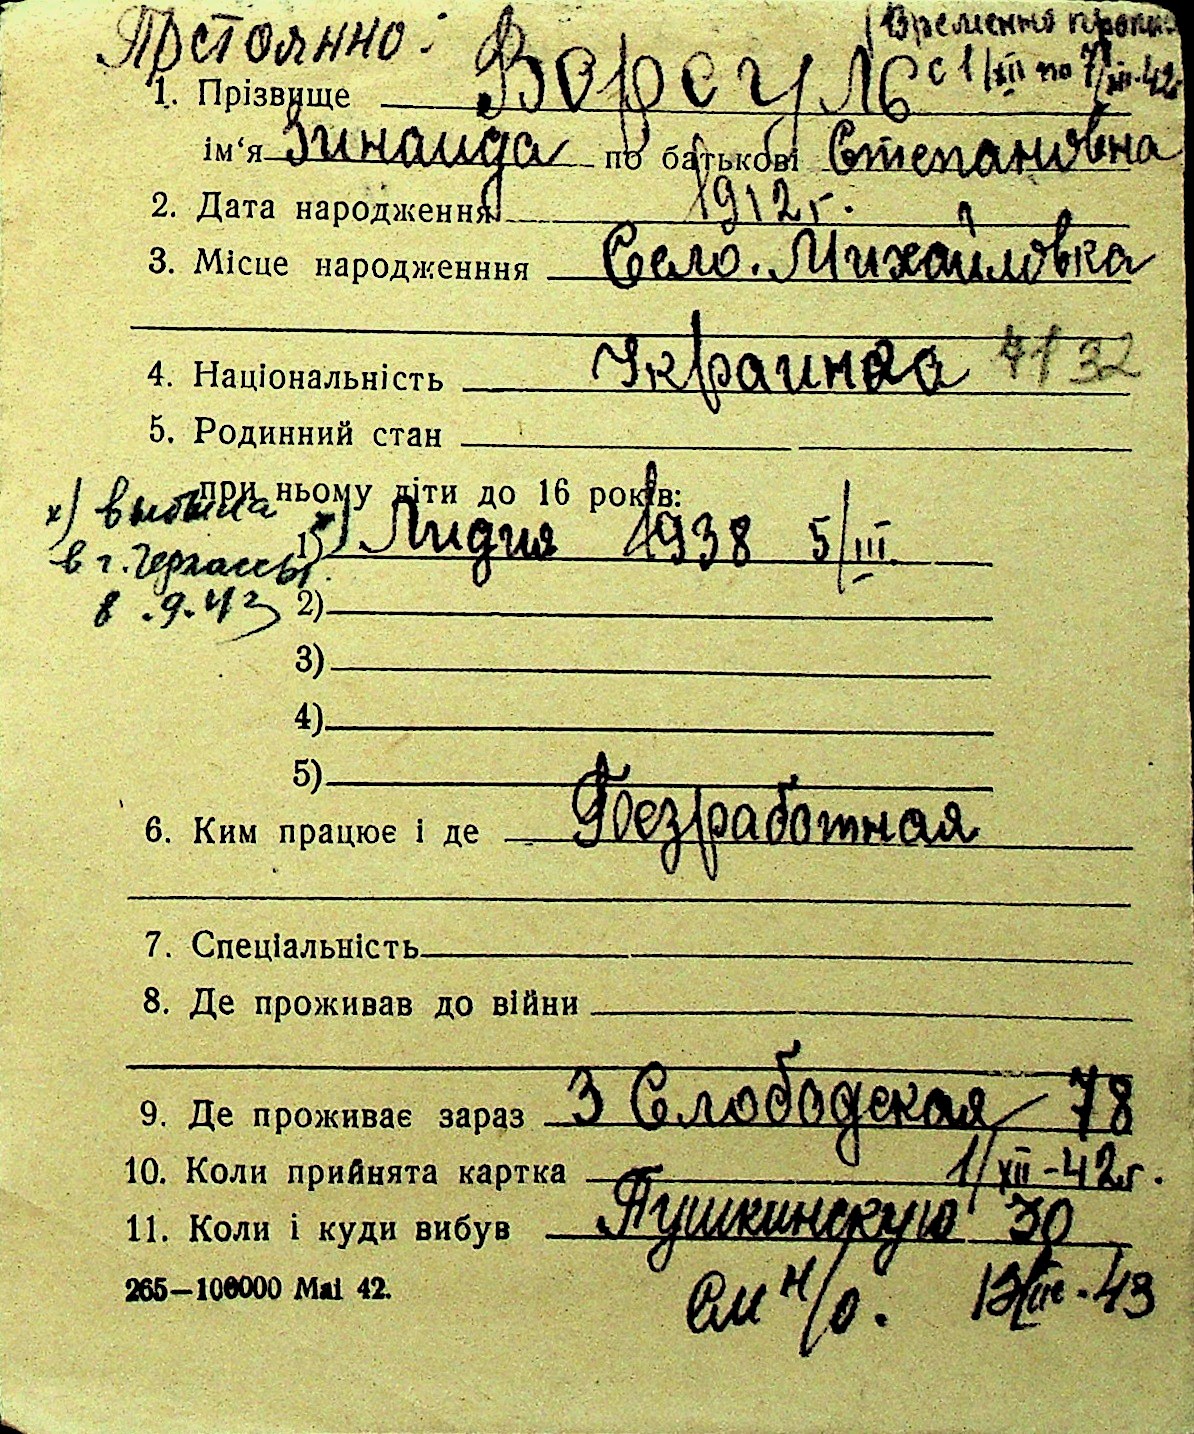 Постоянно: Временно пропис
с 1/XII по 7/XII-42г
1. Прізвище Ворсуль
ім‘я Зинаида по батькові Степановна
2. Дата народження 1912 г.
3. Місце народженння Село. Михайловка
4. Національність Украинка 4132
5. Родинний стан
при ньому діти до 16 років:
х) выбыла
1) х) Лидия 1938 5/III
в г. Черкассы.
2)
8.9.43
3)
4)
5)
6. Ким працює і де Безработная
7. Спеціальність
8. Де проживав до війни
9. Де проживає зараз 3 Слободская 78
10. Коли прийнята картка 1/XII-42г.
11. Коли і куди вибув Пушкинскую 30
265—100000 Mai 42. См н/о. -43